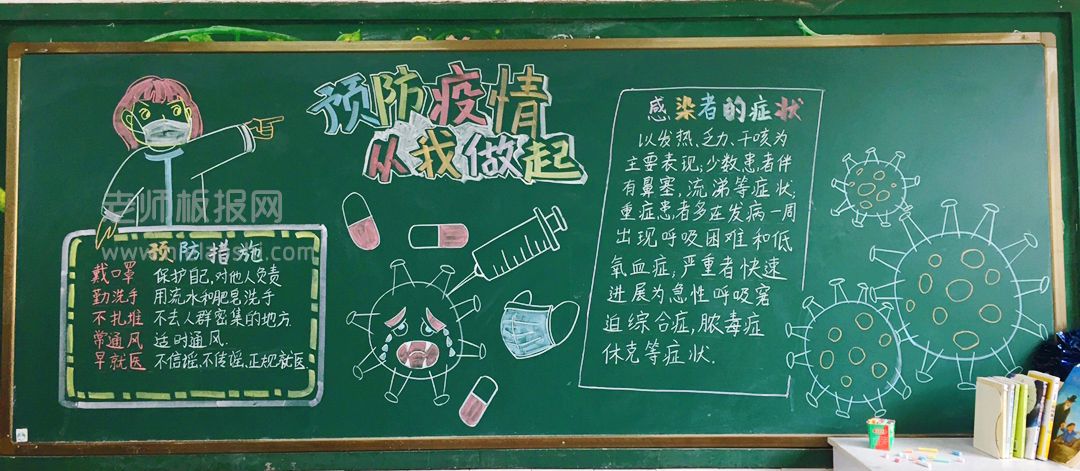 预防疫情
从我做起
老师板报网
预防措施
戴口罩 保护自己,对他人负责
勤洗手 用流水和肥皂洗手
不扎堆 不去人群密集的地方.
常通风 适时通风.
早就医 不信谣、不传谣、正规就医
感染者的症状
以发热、乏力、干咳为
主要表现;少数患者伴
有鼻塞,流涕等症状;
重症患者多在发病一周
出现呼吸困难和低
氧血症;严重者快速
进展为急性呼吸窘
迫综合症,脓毒症
休克等症状.